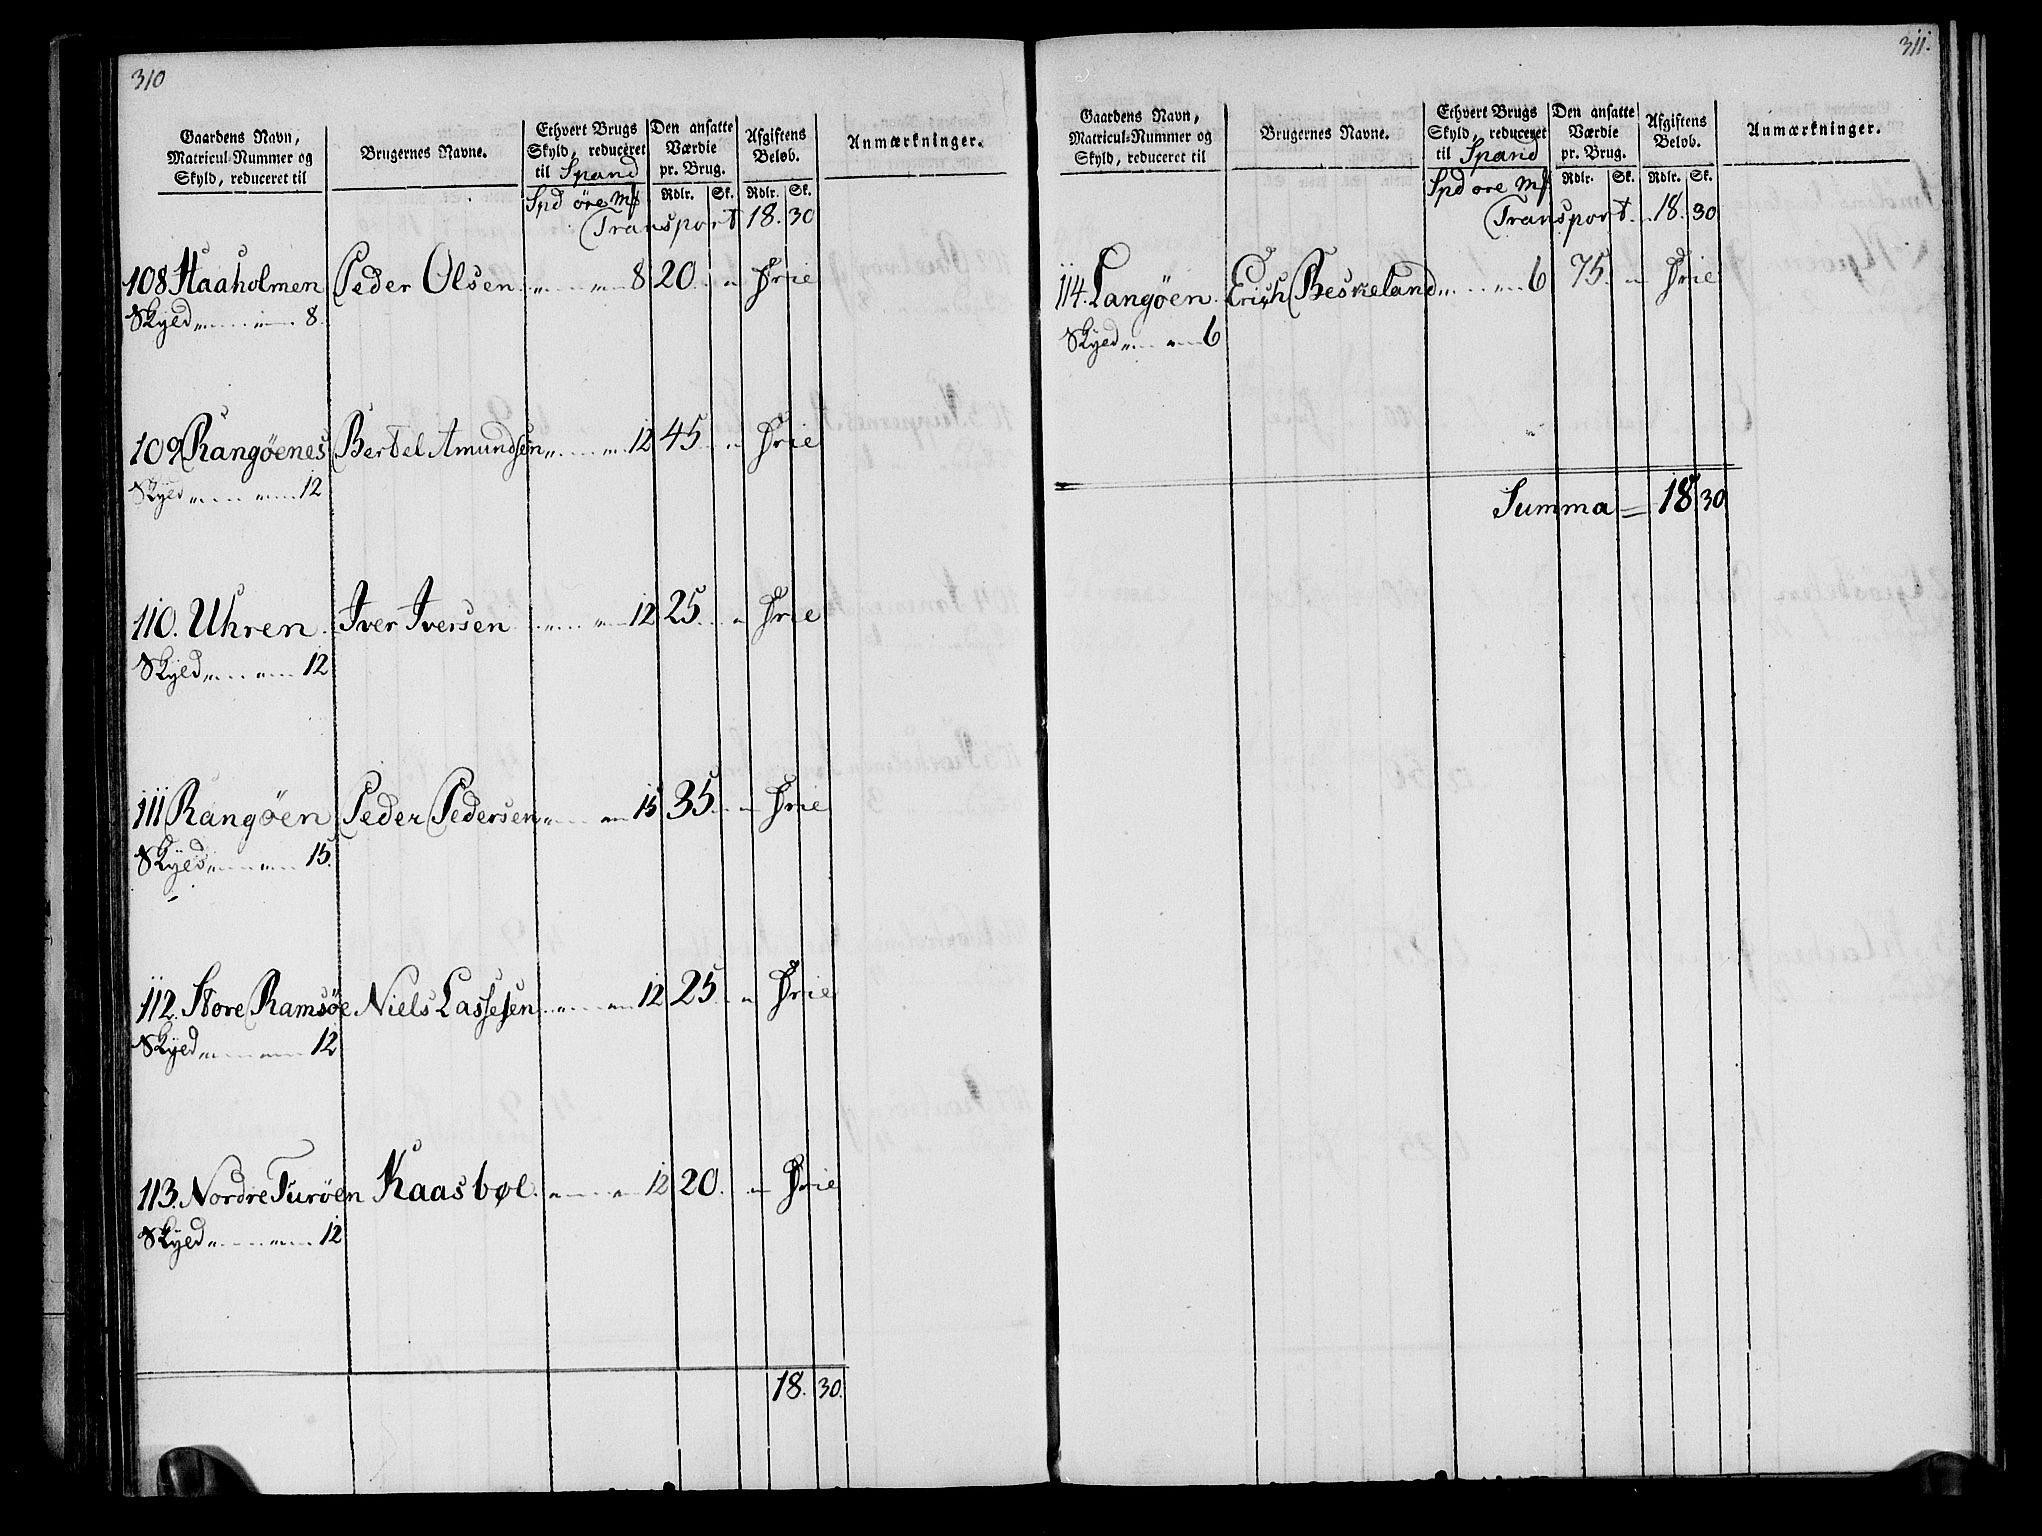 310
Gaardens Navn, Matricul-Nummer og Skyld, reduceret til
Brugernes Navne.
Ethvert Brugs Skyld, reduceret til Spand
Den ansatte Værdie pr. Brug.
Afgiftens Beløb.
Anmærkninger.
Spd öre M𝔩 Rdlr. Sk. Rdlr. Sk.
Transport 18. 30
108 Haaholmen Peder Olsen 8 20 Frie
Skyld 8.
109 Rangöenes Bertel Amundsen 12 45 Frie
Skyld 12
110. Uhren Iver Iversen 12 25 Frie
Skyld 12
111 Rangöen Peder Pedersen 15 35 Frie
Skyld 15.
112. Store Ramsöe Niels Lassesen 12 25 Frie
Skyld 12
113. Nordre Turöen Kaasbøl 12 20 Frie
Skyld 12
18. 30.
311.
Gaardens Navn, Matricul-Nummer og Skyld, reduceret til
Brugernes Navne.
Ethvert Brugs Skyld, reduceret til Spand
Den ansatte Værdie pr. Brug.
Afgiftens Beløb.
Anmærkninger.
Spd öre M𝔩 Rdlr. Sk. Rdlr. Sk.
Transport 18. 30
114. Langøen Erich Beskeland 6 75. Frie
Skyld 6
Summa = 18 30